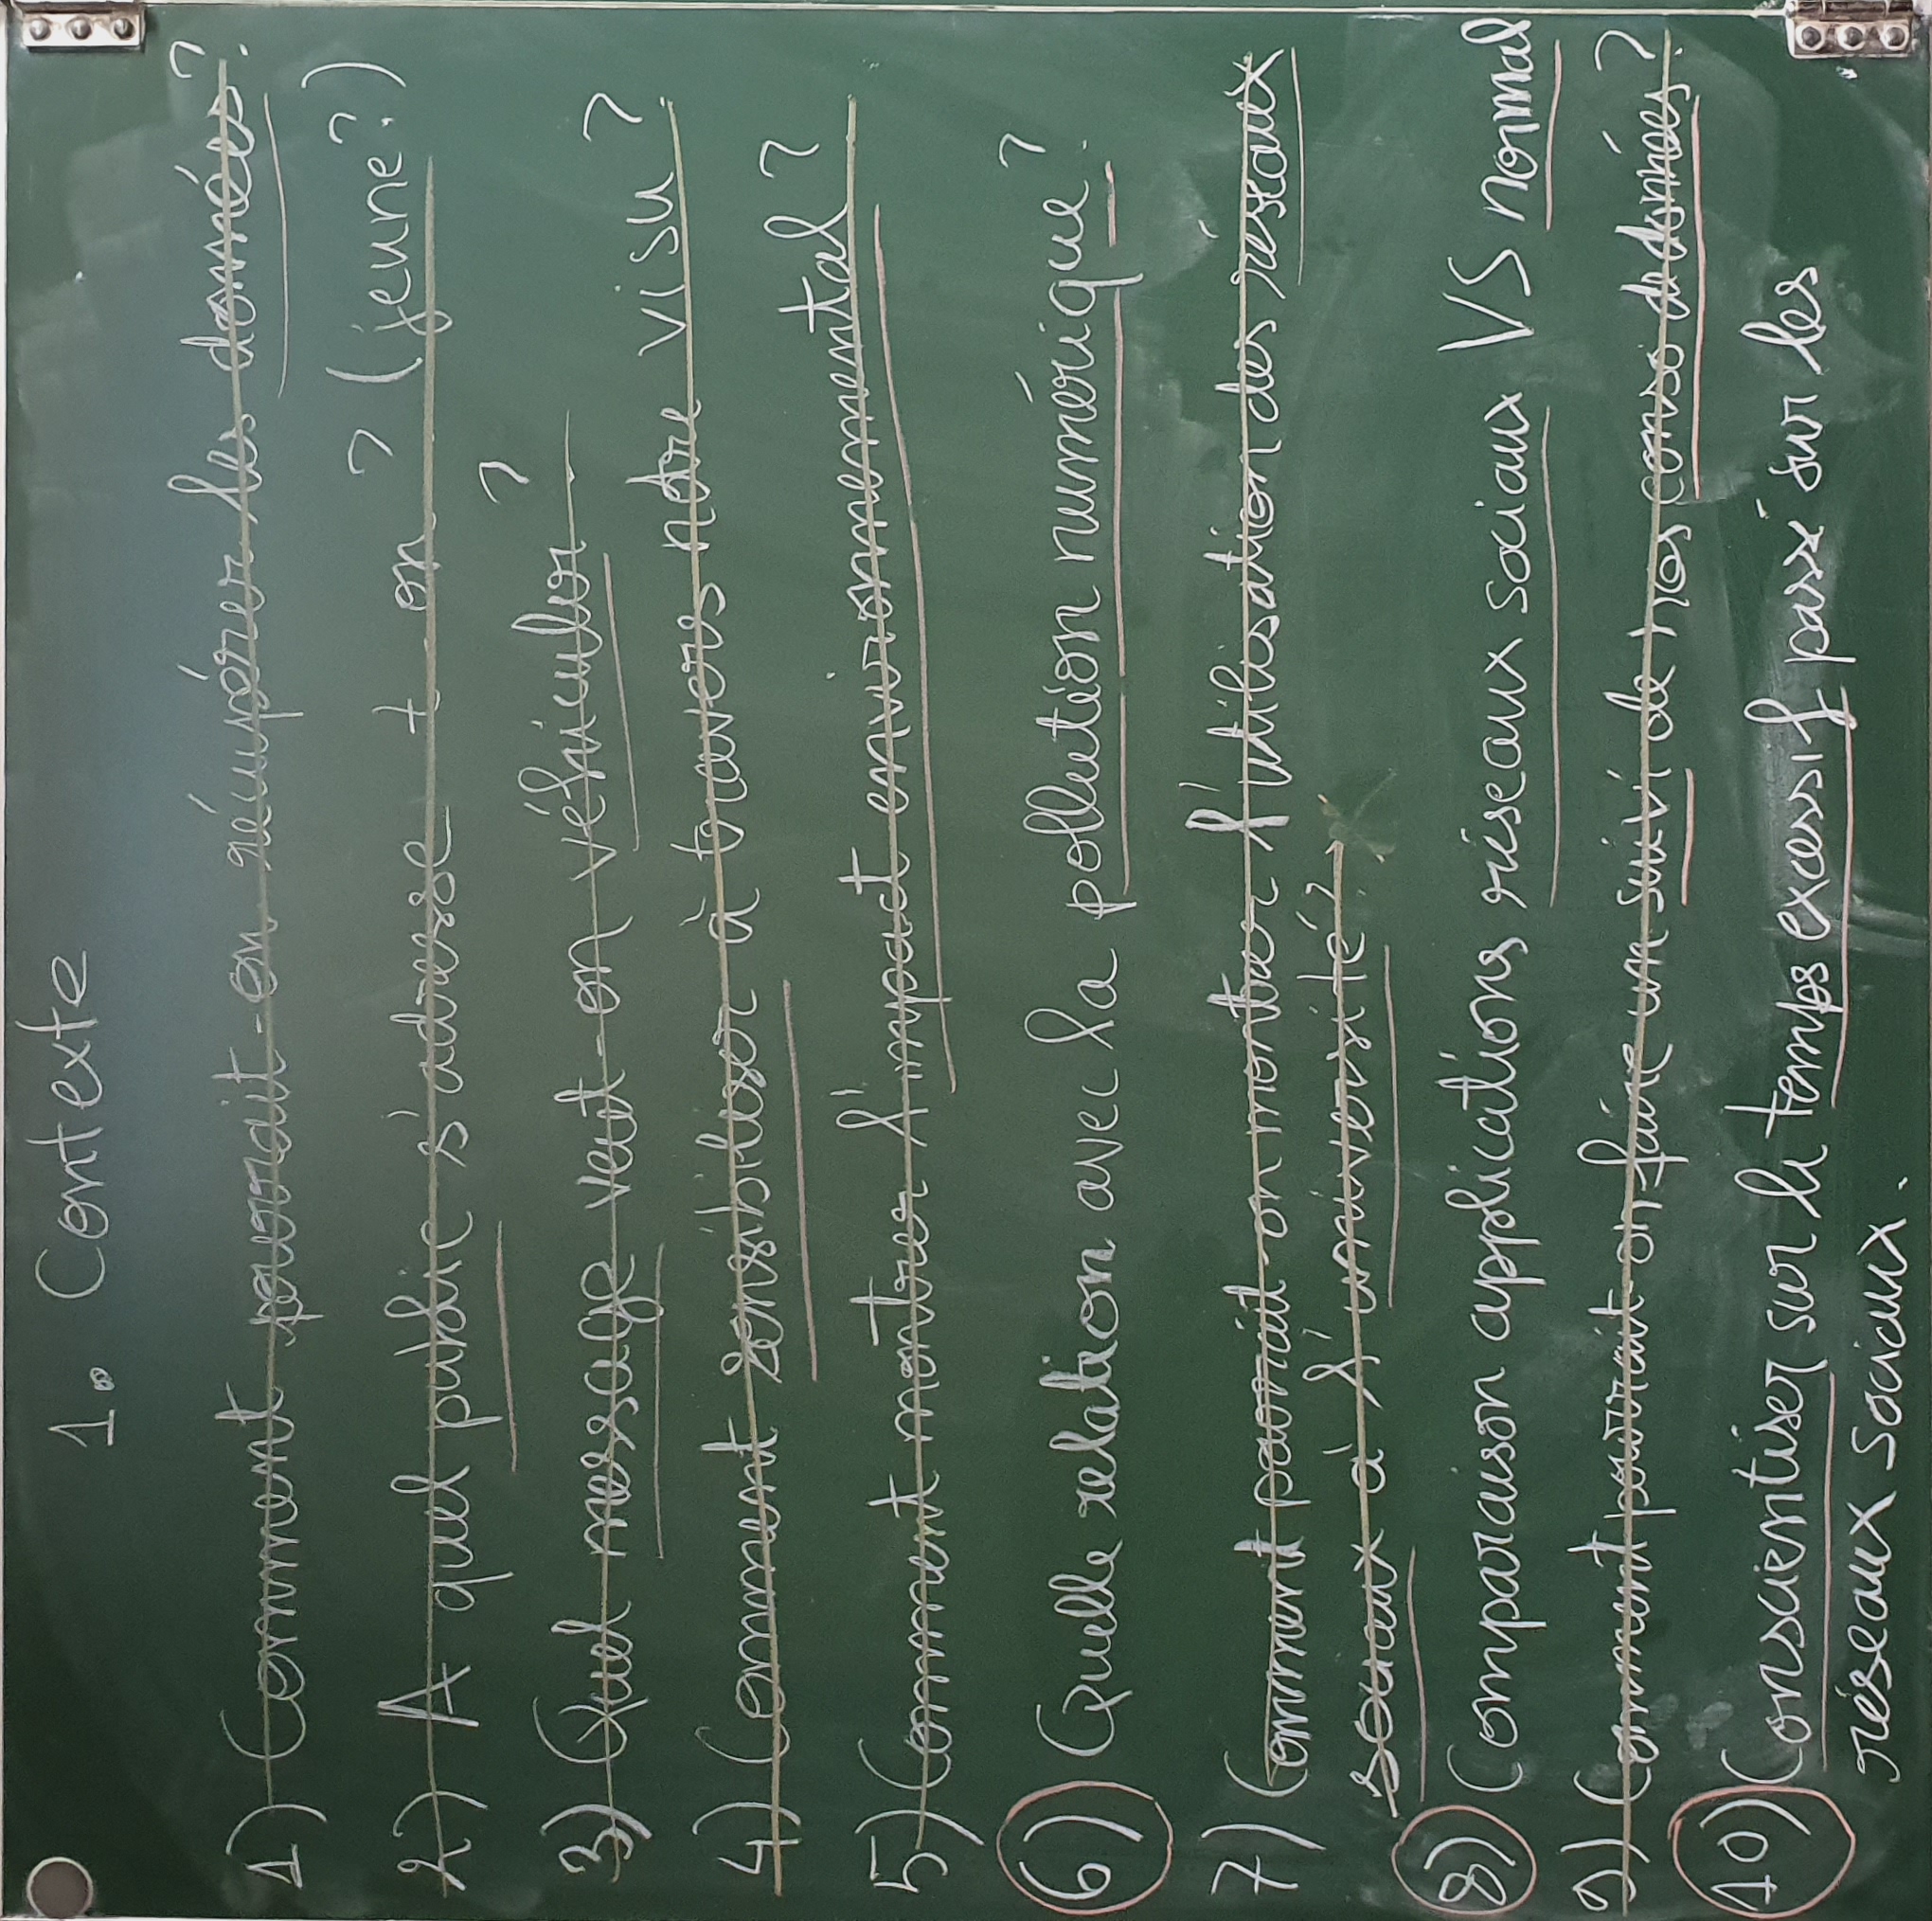 1. Contexte
1) Comment pourrait-on récupérer les données?
2) A quel public s'adresse t-on? (jeune?)
3) Quel message veut-on véhiculer?
4) Comment sensibiliser à travers notre visu?
5) Comment montrer l'impact environnemental?
6) Quelle relation avec la pollution numérique?
7) Comment pourrait-on montrer l'utilisation des réseaux
sociaux à l'université?
8) Comparaison applications réseaux sociaux VS normal
9) Comment pourrait-on faire un suivi de nos conso de données?
10) Conscientiser sur le temps excessif passé sur les
réseaux sociaux.